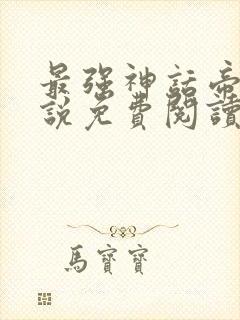 最強神話帝
說免費閱讀
馬寶寶